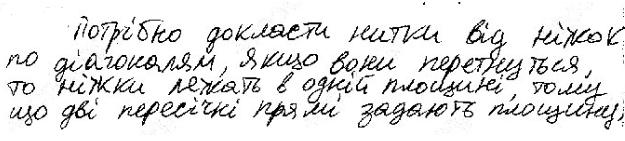 Потрібно докласти нитки від ніжок
по діагоналям, якщо вони перетнуться,
то ніжки лежать в одній площині, тому
що дві пересічні прямі задають площину.